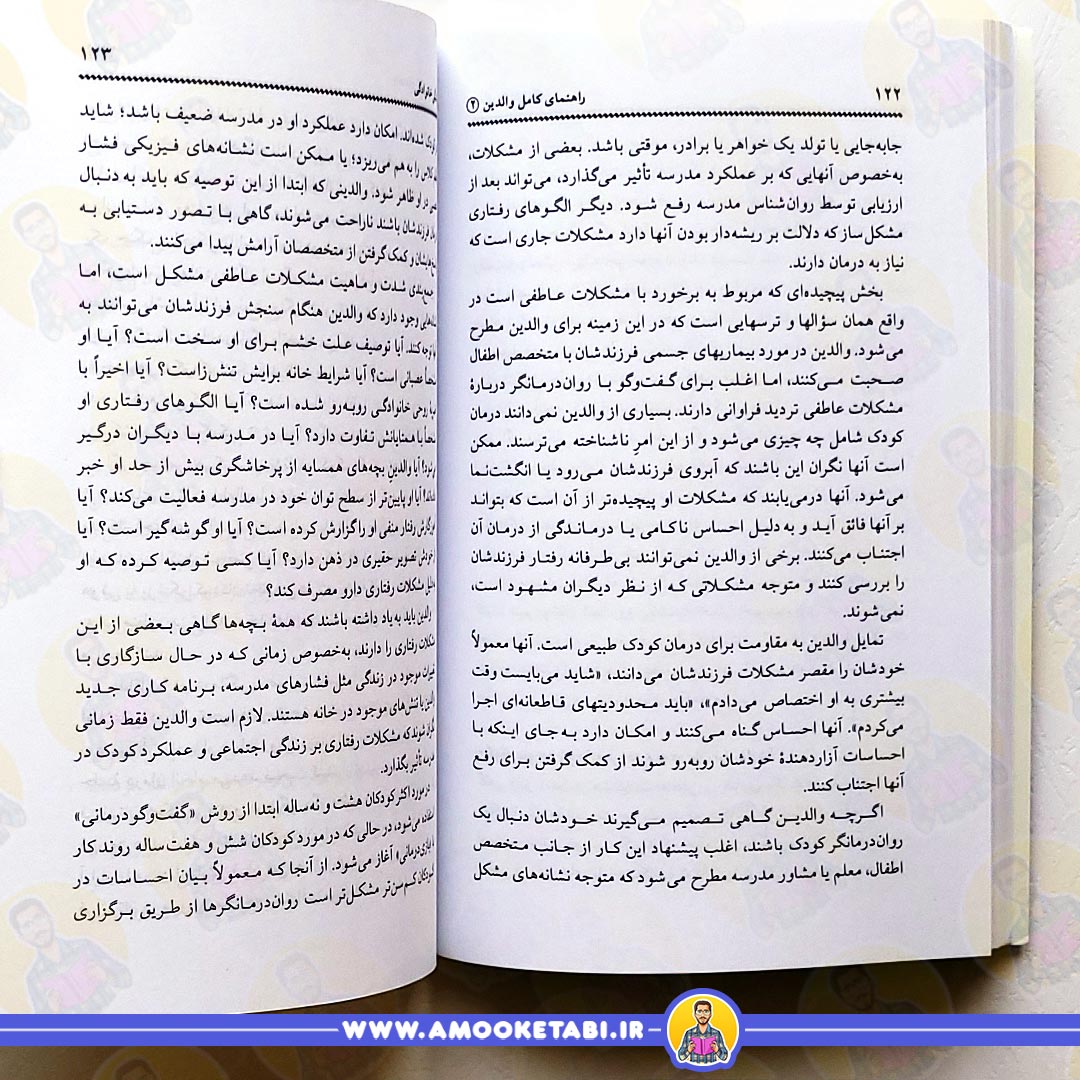 ۱۲۲
راهنمای کامل والدین ۲
جابه‌جایی یا تولد یک خواهر یا برادر، موقتی باشد. بعضی از مشکلات،
به‌خصوص آنهایی که بر عملکرد مدرسه تأثیر می‌گذارد، می‌تواند بعد از
ارزیابی توسط روان‌شناس مدرسه رفع شود. دیگر الگوهای رفتاری
مشکل‌ساز که دلالت بر ریشه‌دار بودن آنها دارد مشکلات جاری است که
نیاز به درمان دارند.
بخش پیچیده‌ای که مربوط به برخورد با مشکلات عاطفی است در
واقع همان سؤالها و ترسهایی است که در این زمینه برای والدین مطرح
می‌شود. والدین در مورد بیماریهای جسمی فرزندشان با متخصص اطفال
صحبت می‌کنند، اما اغلب برای گفت‌وگو با روان‌درمانگر دربارهٔ
مشکلات عاطفی تردید فراوانی دارند. بسیاری از والدین نمی‌دانند درمان
کودک شامل چه چیزی می‌شود و از این امرِ ناشناخته می‌ترسند. ممکن
است آنها نگران این باشند که آبروی فرزندشان می‌رود یا انگشت‌نما
می‌شود. آنها درمی‌یابند که مشکلات او پیچیده‌تر از آن است که بتواند
بر آنها فائق آید و به دلیل احساس ناکامی یا درماندگی از درمان آن
اجتناب می‌کنند. برخی از والدین نمی‌توانند بی‌طرفانه رفتار فرزندشان
را بررسی کنند و متوجه مشکلاتی که از نظر دیگران مشهود است،
نمی‌شوند.
تمایل والدین به مقاومت برای درمان کودک طبیعی است. آنها معمولاً
خودشان را مقصر مشکلات فرزندشان می‌دانند، «شاید می‌بایست وقت
بیشتری به او اختصاص می‌دادم»، «باید محدودیتهای قاطعانه‌ای اجرا
می‌کردم». آنها احساس گناه می‌کنند و امکان دارد به جای اینکه با
احساسات آزاردهندهٔ خودشان روبه‌رو شوند از کمک گرفتن برای رفع
آنها اجتناب کنند.
اگرچه والدین گاهی تصمیم می‌گیرند خودشان دنبال یک
روان‌درمانگر کودک باشند، اغلب پیشنهاد این کار از جانب متخصص
اطفال، معلم یا مشاور مدرسه مطرح می‌شود که متوجه نشانه‌های مشکل
۱۲۳
خانوادگی
شده‌اند. امکان دارد عملکرد او در مدرسه ضعیف باشد؛ شاید
کلاس را به هم می‌ریزد؛ یا ممکن است نشانه‌های فیزیکی فشار
در او ظاهر شود. والدینی که ابتدا از این توصیه که باید به دنبال
فرزندشان باشند ناراحت می‌شوند، گاهی با تصور دستیابی به
و کمک گرفتن از متخصصان آرامش پیدا می‌کنند.
شدت و ماهیت مشکلات عاطفی مشکل است، اما
وجود دارد که والدین هنگام سنجش فرزندشان می‌توانند به
توجه کنند. آیا توصیف علت خشم برای او سخت است؟ آیا او
عصبانی است؟ آیا شرایط خانه برایش تنش‌زاست؟ آیا اخیراً با
روحی خانوادگی روبه‌رو شده است؟ آیا الگوهای رفتاری او
با همتایانش تفاوت دارد؟ آیا در مدرسه با دیگران درگیر
آیا والدینِ بچه‌های همسایه از پرخاشگری بیش از حد او خبر
آیا او پایین‌تر از سطح توان خود در مدرسه فعالیت می‌کند؟ آیا
رفتار منفی او را گزارش کرده است؟ آیا او گوشه‌گیر است؟ آیا
تصویر حقیری در ذهن دارد؟ آیا کسی توصیه کرده که او
مشکلات رفتاری دارو مصرف کند؟
والدین باید به یاد داشته باشند که همهٔ بچه‌ها گاهی بعضی از این
مشکلات رفتاری را دارند، به‌خصوص زمانی که در حال سازگاری با
تغییرات موجود در زندگی مثل فشارهای مدرسه، برنامه کاری جدید
والدین یا تنش‌های موجود در خانه هستند. لازم است والدین فقط زمانی
نگران شوند که مشکلات رفتاری بر زندگی اجتماعی و عملکرد کودک در
مدرسه تأثیر بگذارد.
در مورد اکثر کودکان هشت و نه‌ساله ابتدا از روش «گفت‌وگو درمانی»
استفاده می‌شود، در حالی که در مورد کودکان شش و هفت‌ساله روند کار
با «بازی‌درمانی» آغاز می‌شود. از آنجا که معمولاً بیان احساسات در
کودکان کم‌سن‌تر مشکل‌تر است روان‌درمانگرها از طریق برگزاری
WWW.AMOOKETABI.IR